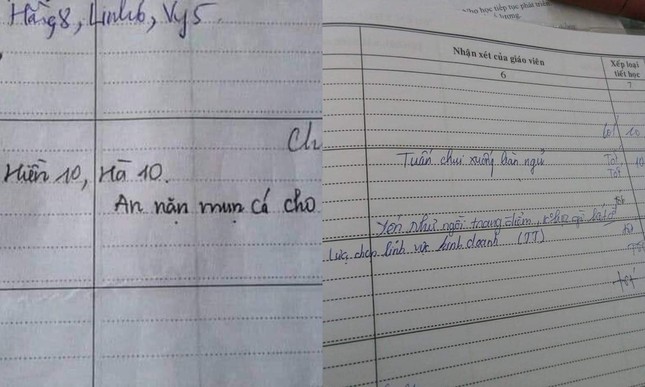 Hằng 8, Linh 6, Vy 5
Ch
Hiền 10, Hà 10.
An nặn mụn cá cho
cho học tiếp tục phát triển
Nhận xét của giáo viên
Xếp loại
tiết học
6
7
Tốt 10
Tuấn chui xuống bàn ngủ
Tốt 10
Tốt
Tốt
Yến như ngồi trang điểm
Lựa chọn lĩnh vực kinh doanh (TT)
10
Tốt